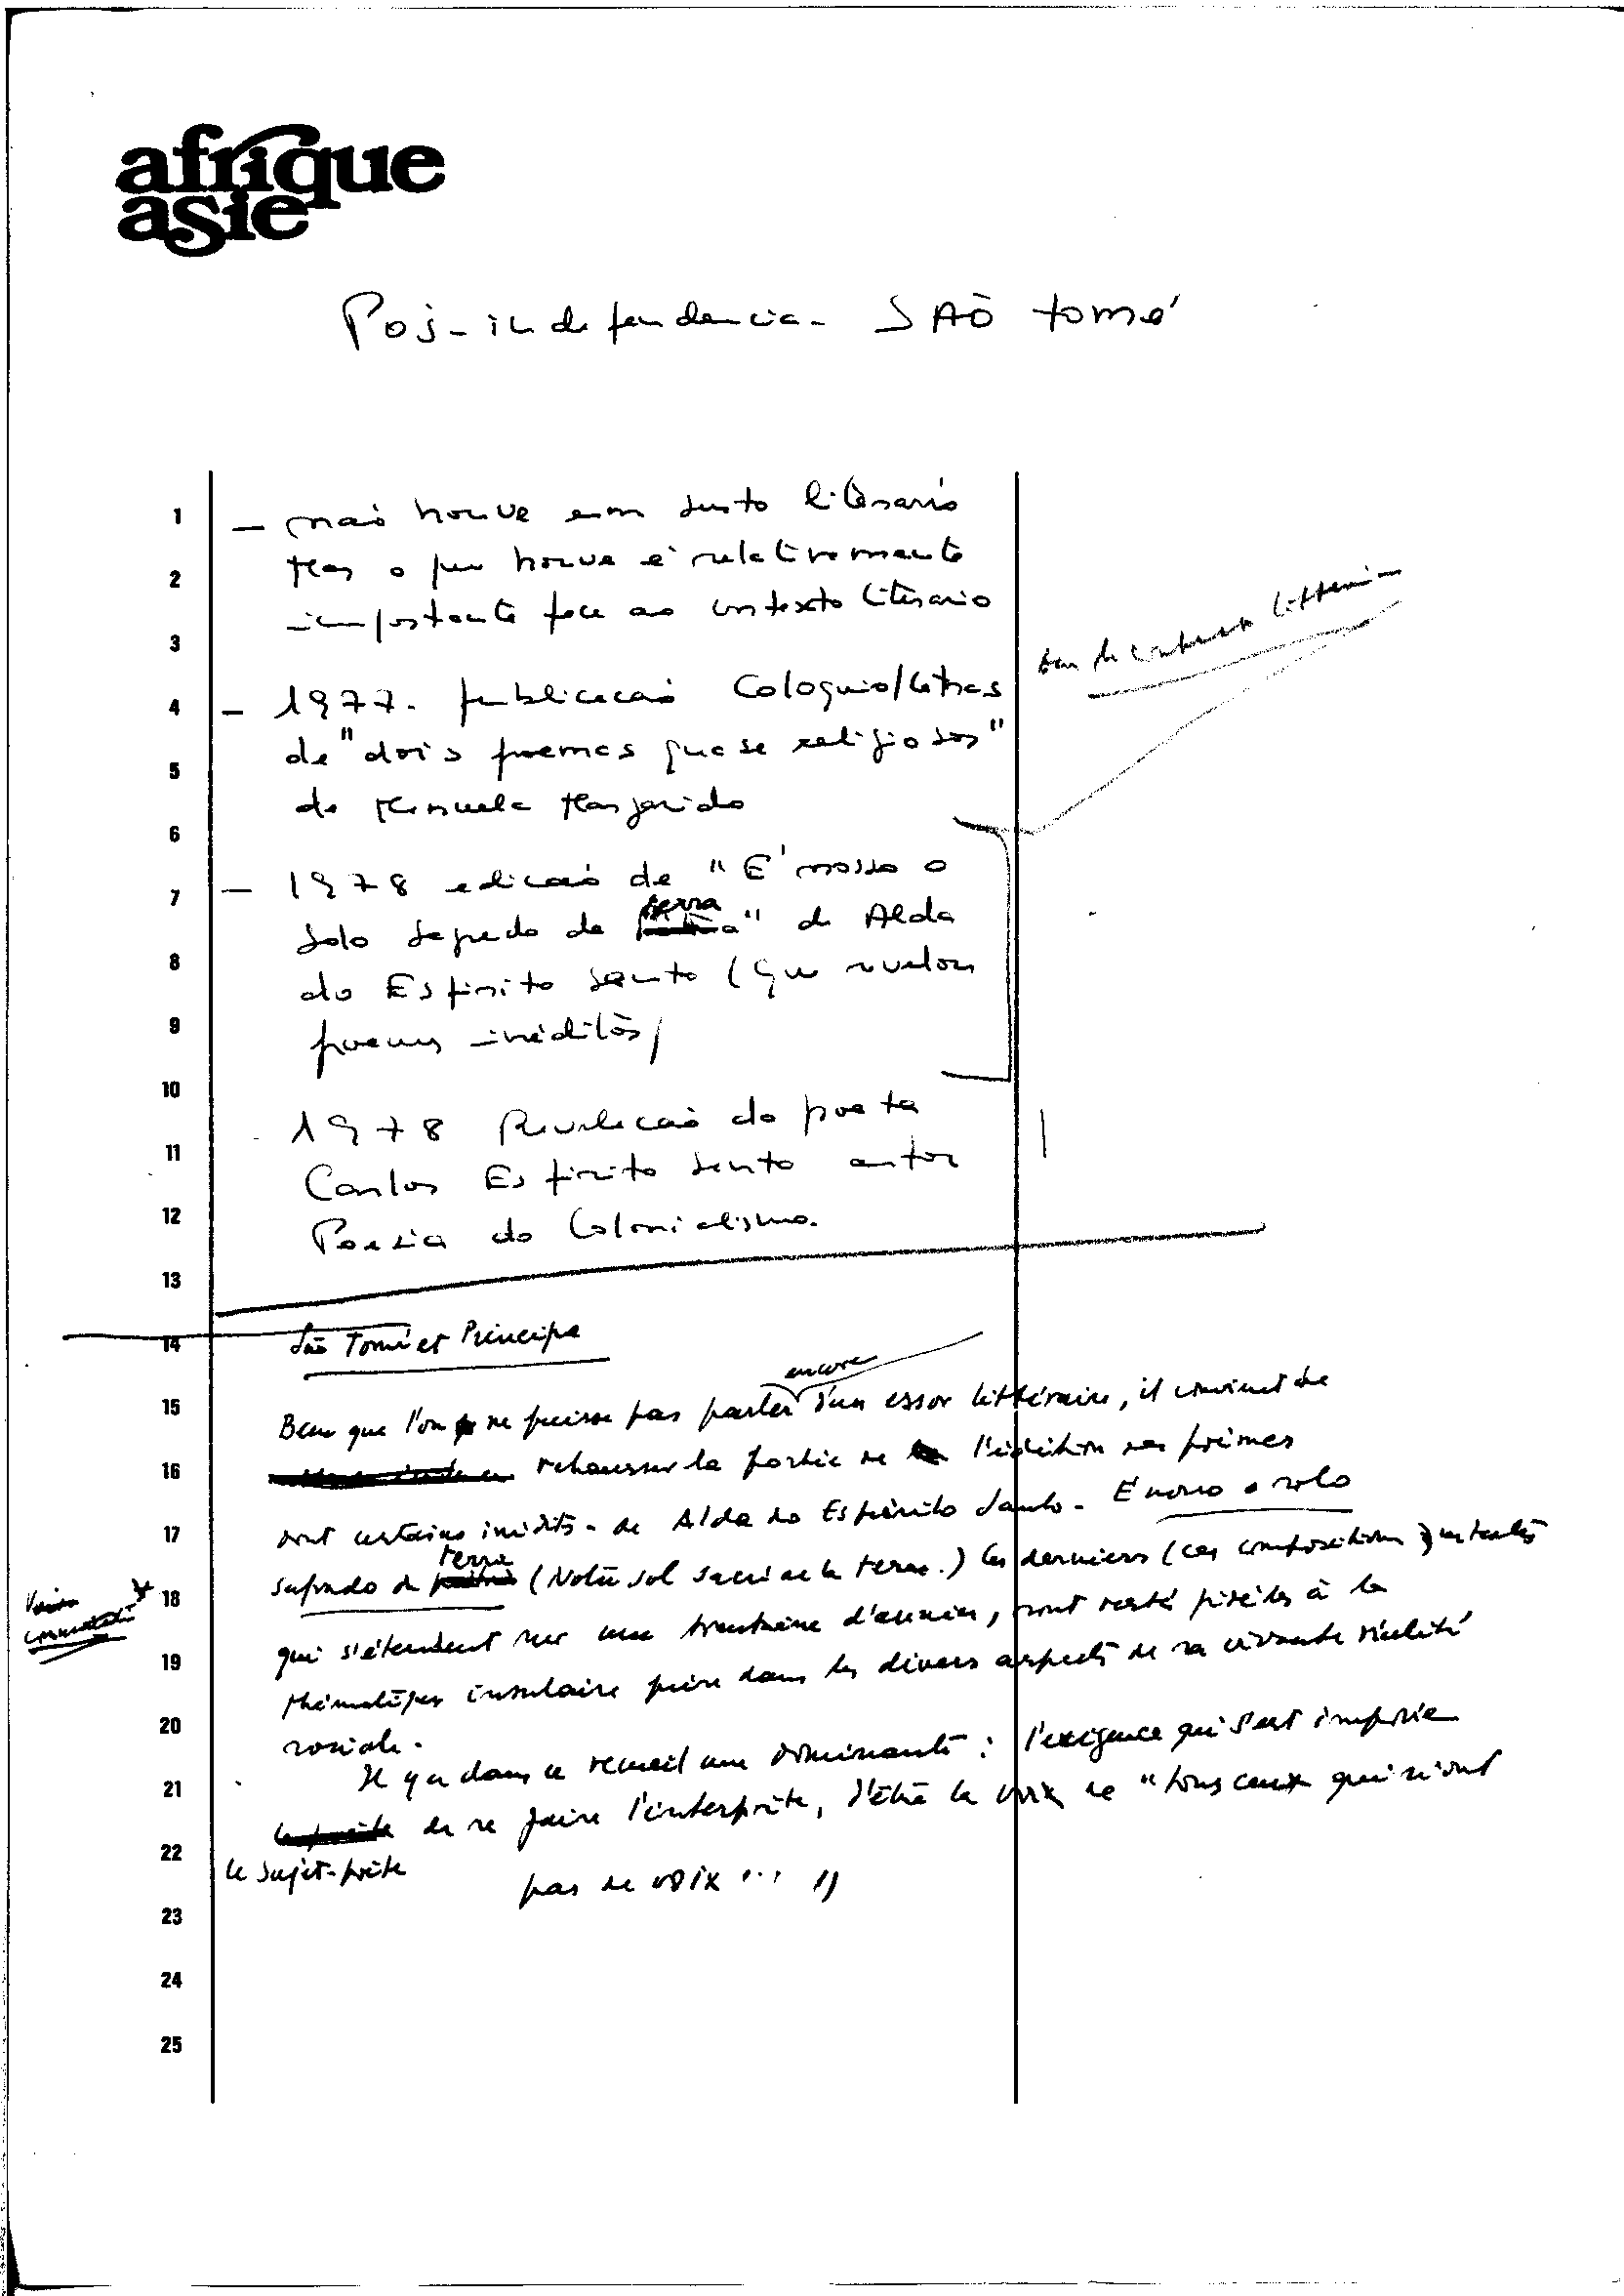 afrique
asie
Pós-independencia - SAÕ tomé
1
2
3
4
5
6
7
8
9
10
11
12
13
14
15
16
17
18
19
20
21
22
23
24
25
— naõ houve um surto literario
Mas o que houve é relativamente
importante face ao contexto literario
— 1977. publicacaõ Coloquio/Letras
de "dois poemas quase religiosos"
de Manuela Margarido
— 1978 edicaõ de "É nosso o
solo sagrado da terra" de Alda
do Espirito Santo (que revelou
poemas inéditos)
- 1978 Revelacaõ do poeta
Carlos Espirito Santo autor
Poesia do Colonialismo.
São Tomé et Principe
encore
Bien que l'on ne puisse pas parler d'un essor littéraire, il convient de
rehausser la portée de l'édition des poèmes
dont certains inédits - de Alda do Espírito Santo - É nosso o solo
sagrado da terra (Notre sol sacré de la terre.) Ces derniers (ces compositions)
qui s'étendent sur une trentaine d'années, sont resté fidèles à la
thématique insulaire puisée dans les divers aspects de sa vivante réalité
sociale.
Il y a dans ce recueil une dominante : l'exigence qui s'est imposée
le sujet-poète
de se faire l'interprète, d'être la voix de "tous ceux qui n'ont
pas de voix ... "